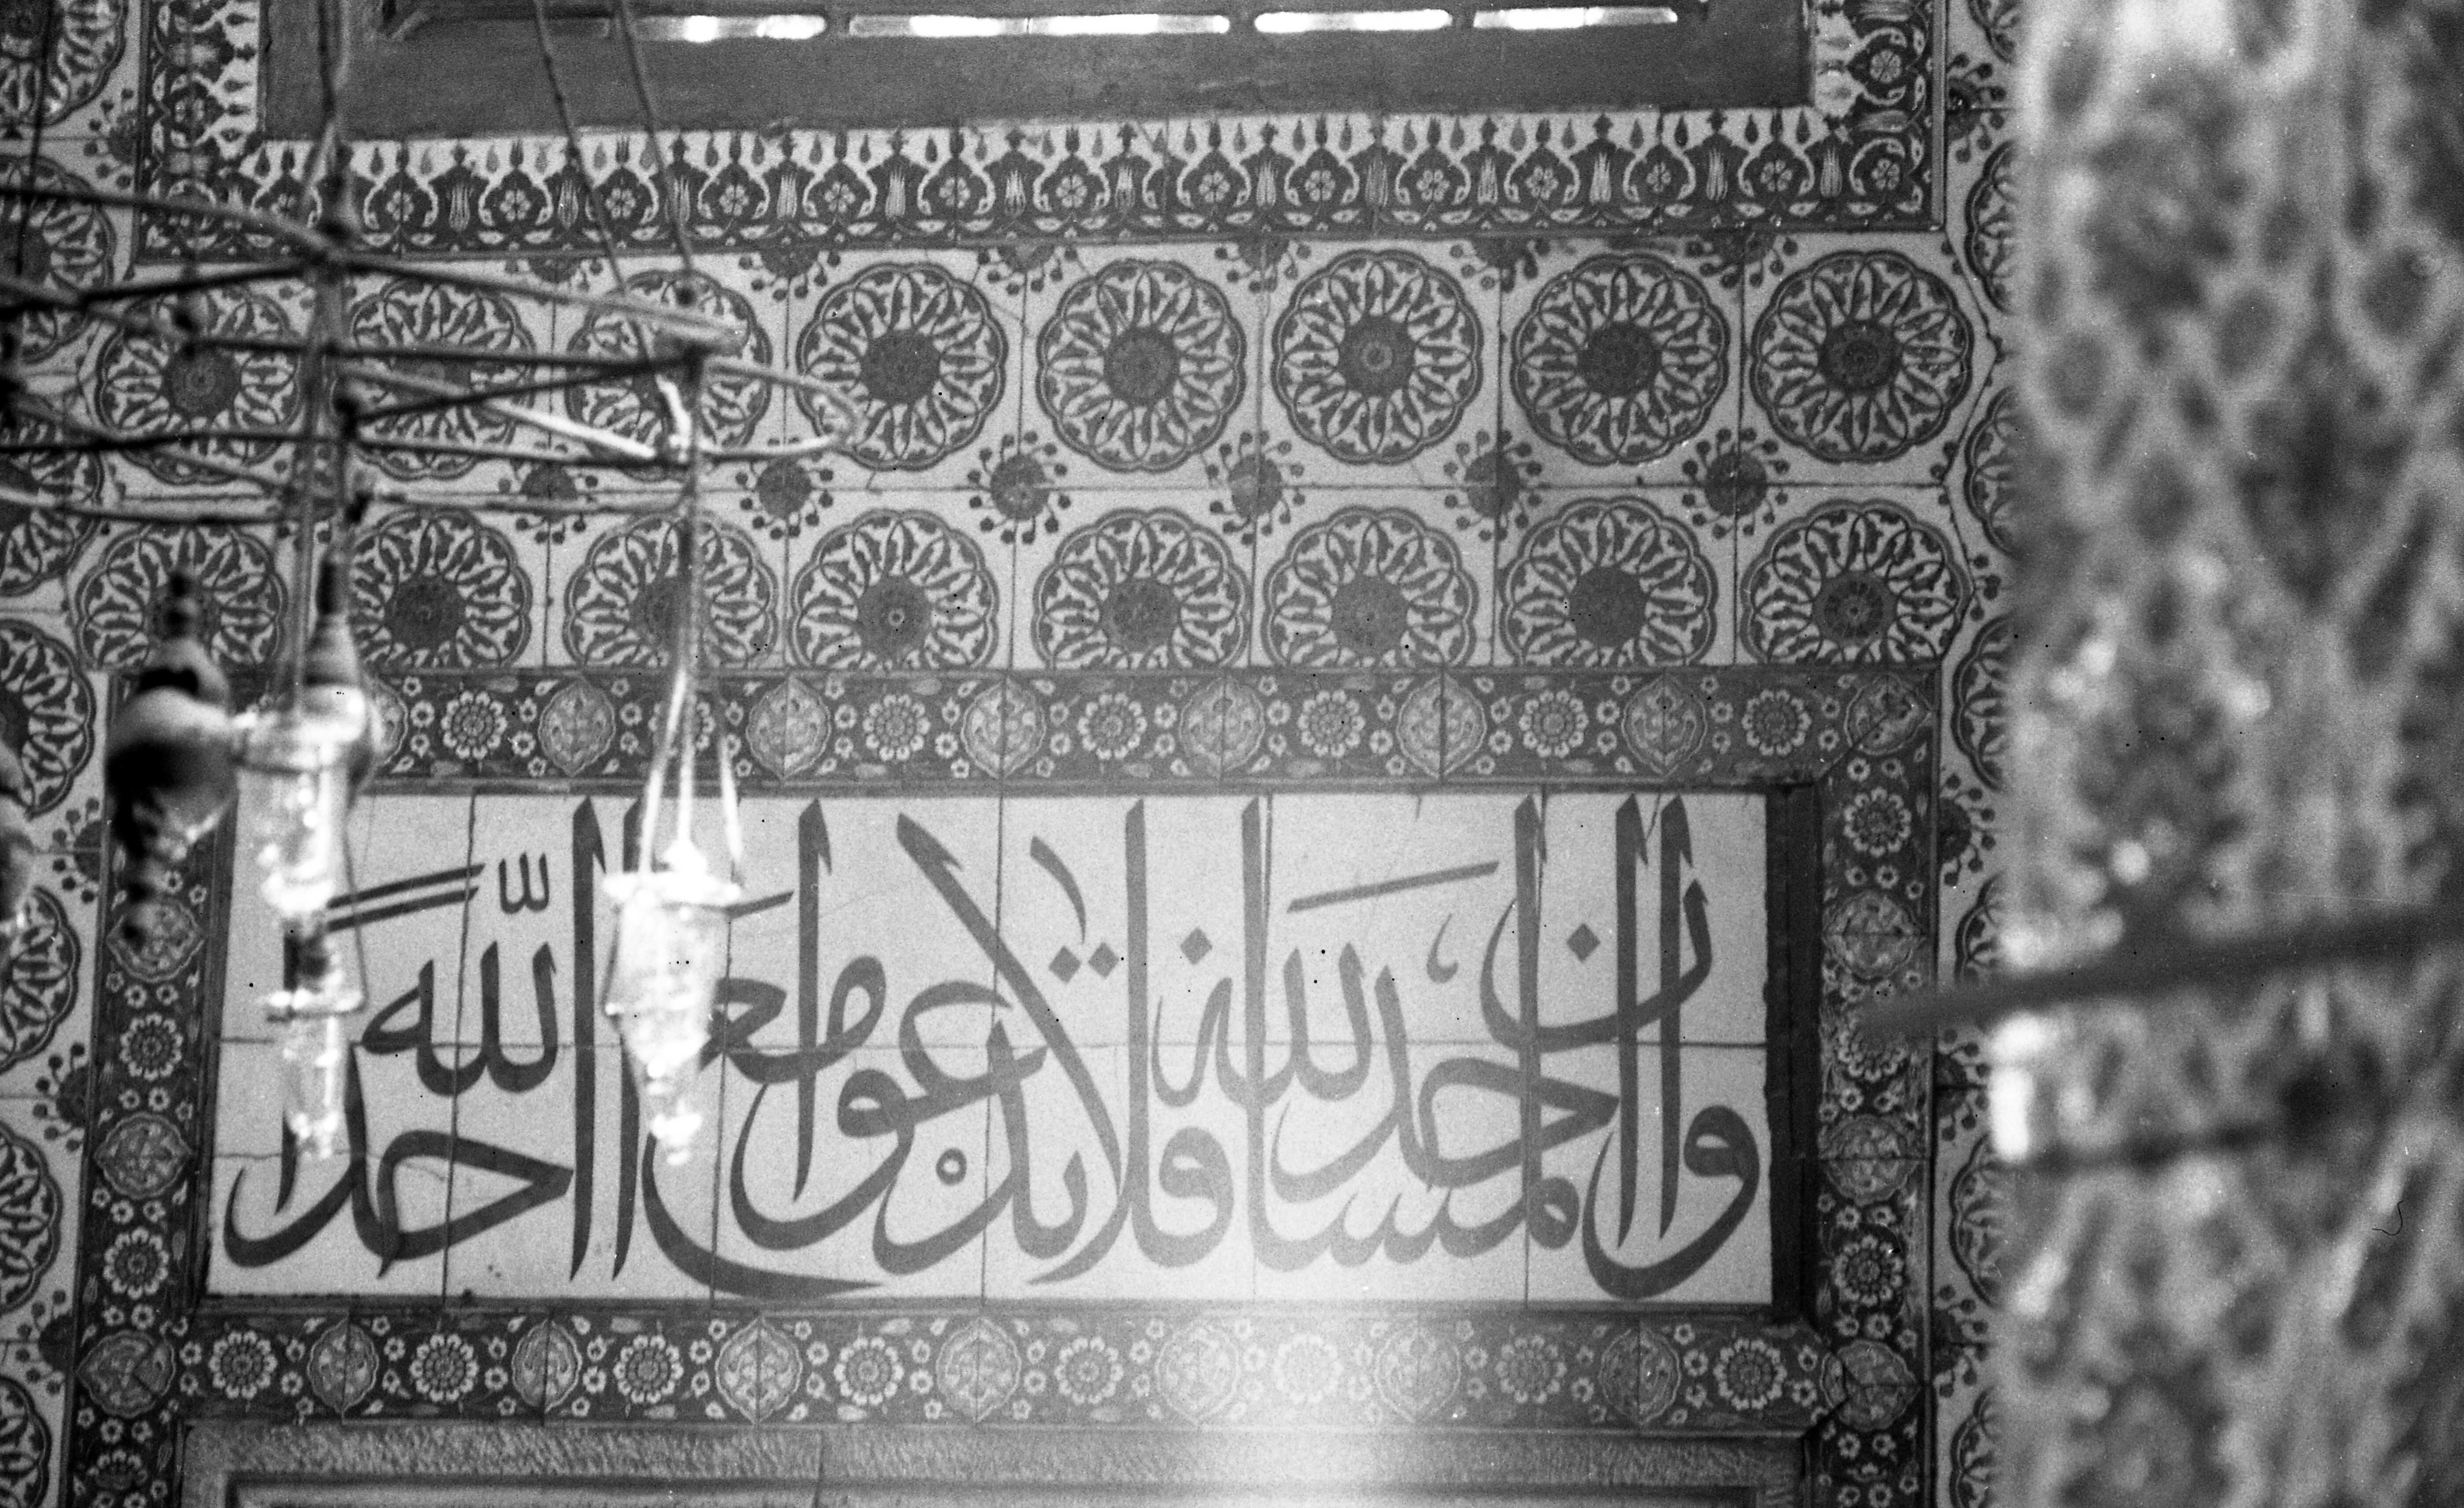 وان المساجد لله فلا تدعوا مع الله احدا